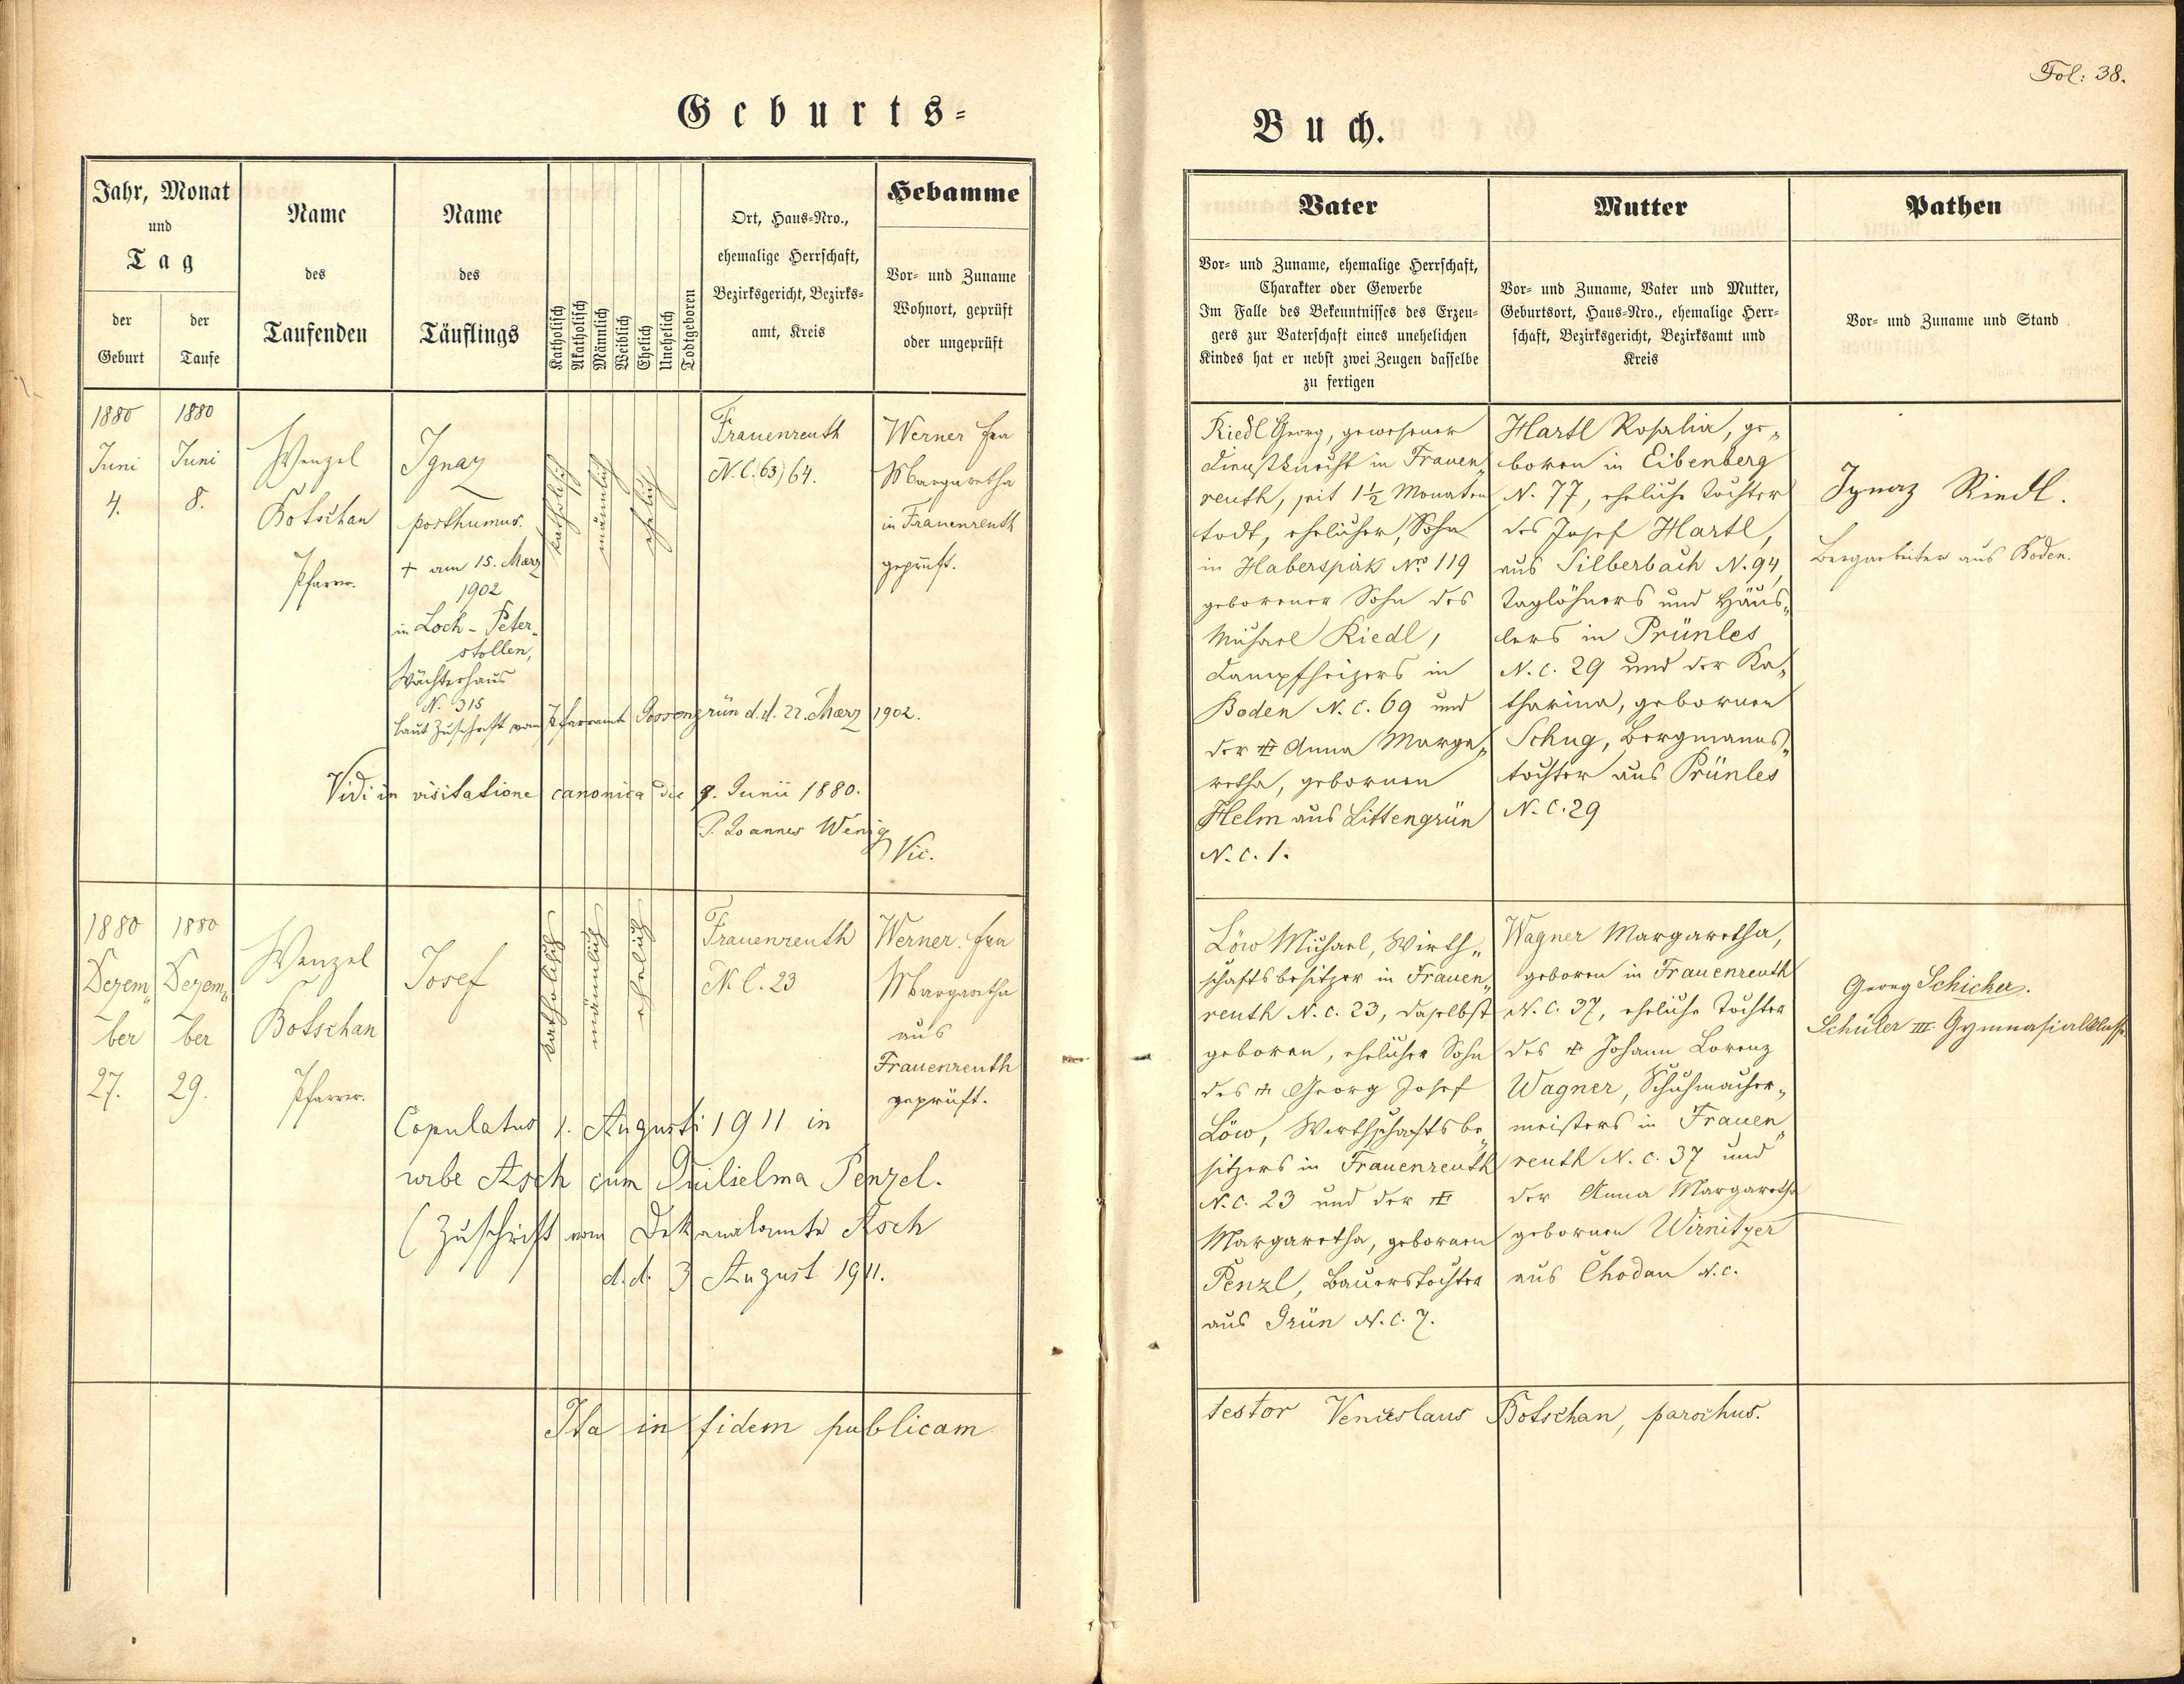 Fol: 38.
Geburts-
Buch.
Jahr, Monat
und
Tag
der
Geburt
der
Taufe
Name
des
Taufenden
Name
des
Täuflings
Katholisch
Akatholisch
Männlich
Weiblich
Ehelich
Unehelich
Todtgeboren
Ort, Haus-Nro.,
ehemalige Herrschaft,
Bezirksgericht, Bezirks-
amt, Kreis
Hebamme
Vor- und Zuname
Wohnort, geprüft
oder ungeprüft
Vater
Vor- und Zuname, ehemalige Herrschaft,
Charakter oder Gewerbe
Im Falle des Bekenntnisses des Erzeu-
gers zur Vaterschaft eines unehelichen
Kindes hat er nebst zwei Zeugen dasselbe
zu fertigen
Mutter
Vor- und Zuname, Vater und Mutter,
Geburtsort, Haus-Nro., ehemalige Herr-
schaft, Bezirksgericht, Bezirksamt und
Kreis
Pathen
Vor- und Zuname und Stand
1880
Juni
4.
1880
Juni
8.
Wenzel
Botschan
Pfarrer.
Ignaz
posthumus.
+ am 15. März
1902
in Loch - Peter„
stollen,
Wächterhaus
N. 315
laut Zuschrift vom Pfarramt Gossengrün d.d. 22. März 1902.
katholisch
männlich
ehelich
Frauenreuth
N.C. 63) 64.
Werner
Margaretha
in Frauenreuth
geprüft.
Vidi in visitatione canonica die 9. Junii 1880.
P. Joannes Wenig
Vic.
Riedl Georg, gewesener
Dienstknecht in Frauen„
reuth, seit 1½ Monaten
todt, ehelicher, Sohn
in Haberspirk Nro 119
geborener Sohn des
Michael Riedl,
Dampfheizers in
Boden N.C. 69 und
der Anna Marga„
retha, gebornen
Helm aus Littengrün
N.C. 1.
Hartl Rosalia, ge„
boren in Eibenberg
N. 77, eheliche Tochter
des Josef Hartl,
aus Silberbach N. 94,
Taglöhners und Häus„
lers in Prünles
N.C. 29 und der Ka„
tharina, gebornen
Schug, Bergmanns„
tochter aus Prünles
N.C. 29
Ignaz Riedl.
Bergarbeiter aus Boden.
1880
Dezem„
ber
27.
1880
Dezem„
ber
29.
Wenzel
Botschan
Pfarrer.
Josef
katholisch
männlich
ehelich
Frauenreuth
N.C. 23
Werner
Margaretha
aus
Frauenreuth
geprüft.
Copulatus 1. Augusti 1911 in
urbe Asch cum Guilielma Penzel.
(Zuschrift vom Dekanalamte Asch
d.d. 3 August 1911.
Löw Michael, Wirth„
schaftsbesitzer in Frauen„
reuth N.C. 23, daselbst
geboren, ehelicher Sohn
des + Georg Josef
Löw, Wirthschaftsbe„
sitzers in Frauenreuth
N.C. 23 und der
Margaretha, gebornen
Penzl, Bauerstochter
aus Grün N.C. 7.
Wagner Margaretha,
geboren in Frauenreuth
N.C. 37, eheliche Tochter
des + Johann Lorenz
Wagner, Schuhmacher„
meisters in Frauen„
reuth N.C. 37 und
der Anna Margaretha
gebornen Wirnitzer
aus Chodau N.C.
Georg Schicher.
Schüler III. Gymnasialklasse
Ita in fidem publicam
testor Venceslaus Botschan, parochus.